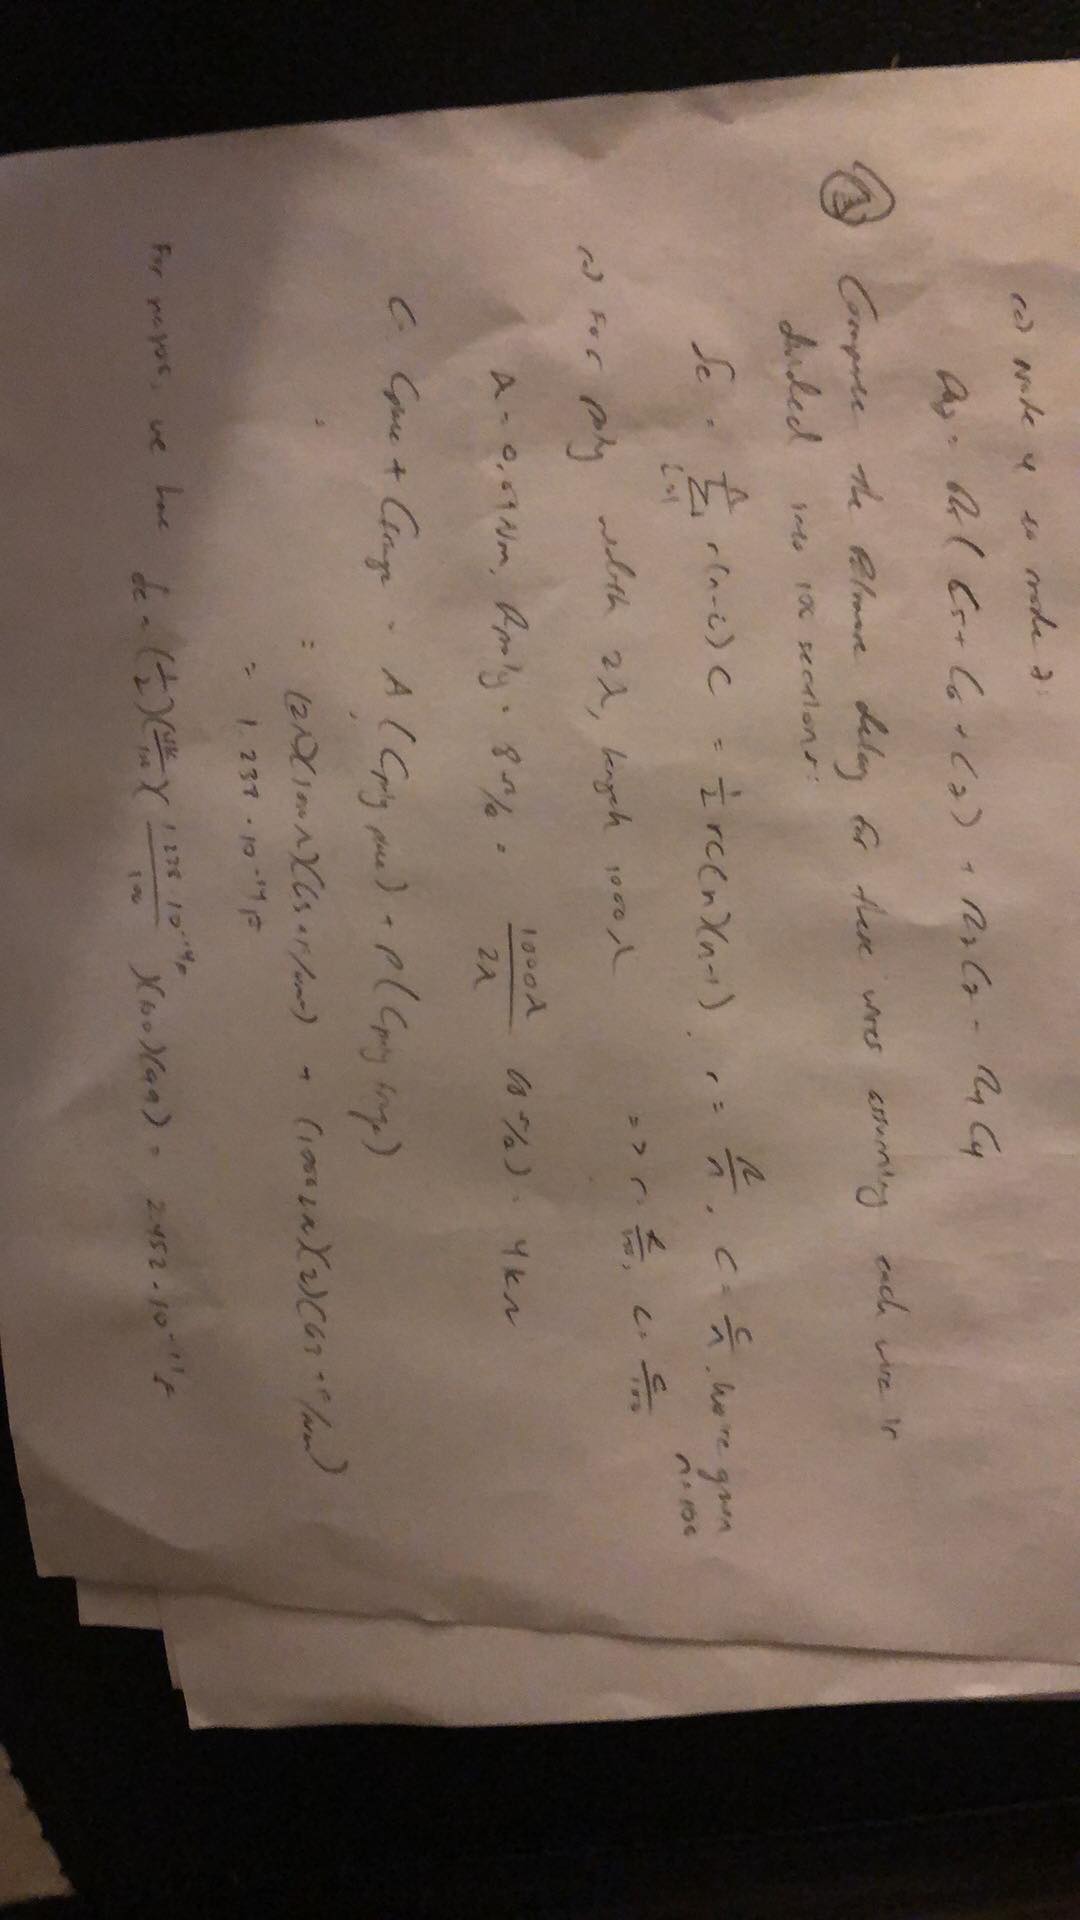 (c) Node 4 to node 7:
= R5( C5 + C6 + C7 ) + R7C7 - R4C4
③ Compute the Elmore delay for these wires assuming each wire is
divided into 100 sections:
δE = Σ i=1 n r(n-i) C = 1/2 rc(n)(n-1), r = R/n, C = C/n, we're given n=100
a) For poly width 2λ, length 1000λ => r = R/100, C = C/100
Rpoly = 8 Ω/□ = 1000λ/2λ (8 Ω/□) = 4kΩ
C = Cplate + Cfringe = A (Cpoly plate) + P (Cpoly fringe)
= (2λ)(1000λ)(63 aF/μm²) + (2)(63 aF/μm)
= 1.238 · 10⁻¹⁴ F
For n=100, we have δE = (1/2)(4k/100)(1.238·10⁻¹⁴F/100)(100)(99) = 2.452 · 10⁻¹¹ s